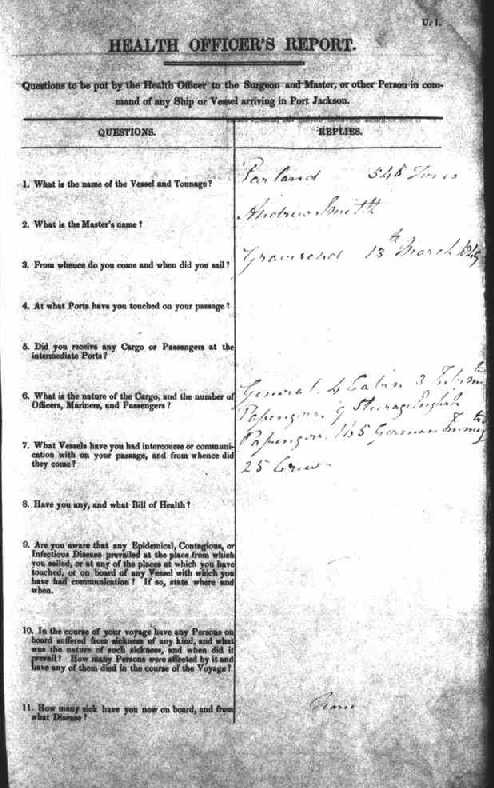 HEALTH OFFICER'S REPORT.
Questions to be put by the Health Officer to the Surgeon and Master, or other Person in com-
mand of any Ship or Vessel arriving in Port Jackson.
QUESTIONS.
REPLIES.
1. What is the name of the Vessel and Tonnage?
Parland 548 Tons
2. What is the Master's name?
Andrew Smith
3. From whence do you come and when did you sail?
Gravesend 13th March 1849
4. At what Ports have you touched on your passage?
5. Did you receive any Cargo or Passengers at the
intermediate Ports?
6. What is the nature of the Cargo, and the number of
Officers, Mariners, and Passengers?
General. 4 Cabin 3
9 Steerage English
145 German
25 Crew
7. What Vessels have you had intercourse or communi-
cation with on your passage, and from whence did
they come?
8. Have you any, and what Bill of Health?
9. Are you aware that any Epidemical, Contagious, or
Infectious Disease prevailed at the place from which
you sailed, or at any of the places at which you have
touched, or on board of any Vessel with which you
have had communication? If so, state where and
when.
10. In the course of your voyage have any Persons on
board suffered from sickness of any kind, and what
was the nature of such sickness, and when did it
prevail? How many Persons were affected by it and
have any of them died in the course of the Voyage?
11. How many sick have you now on board, and from
what Disease?
None